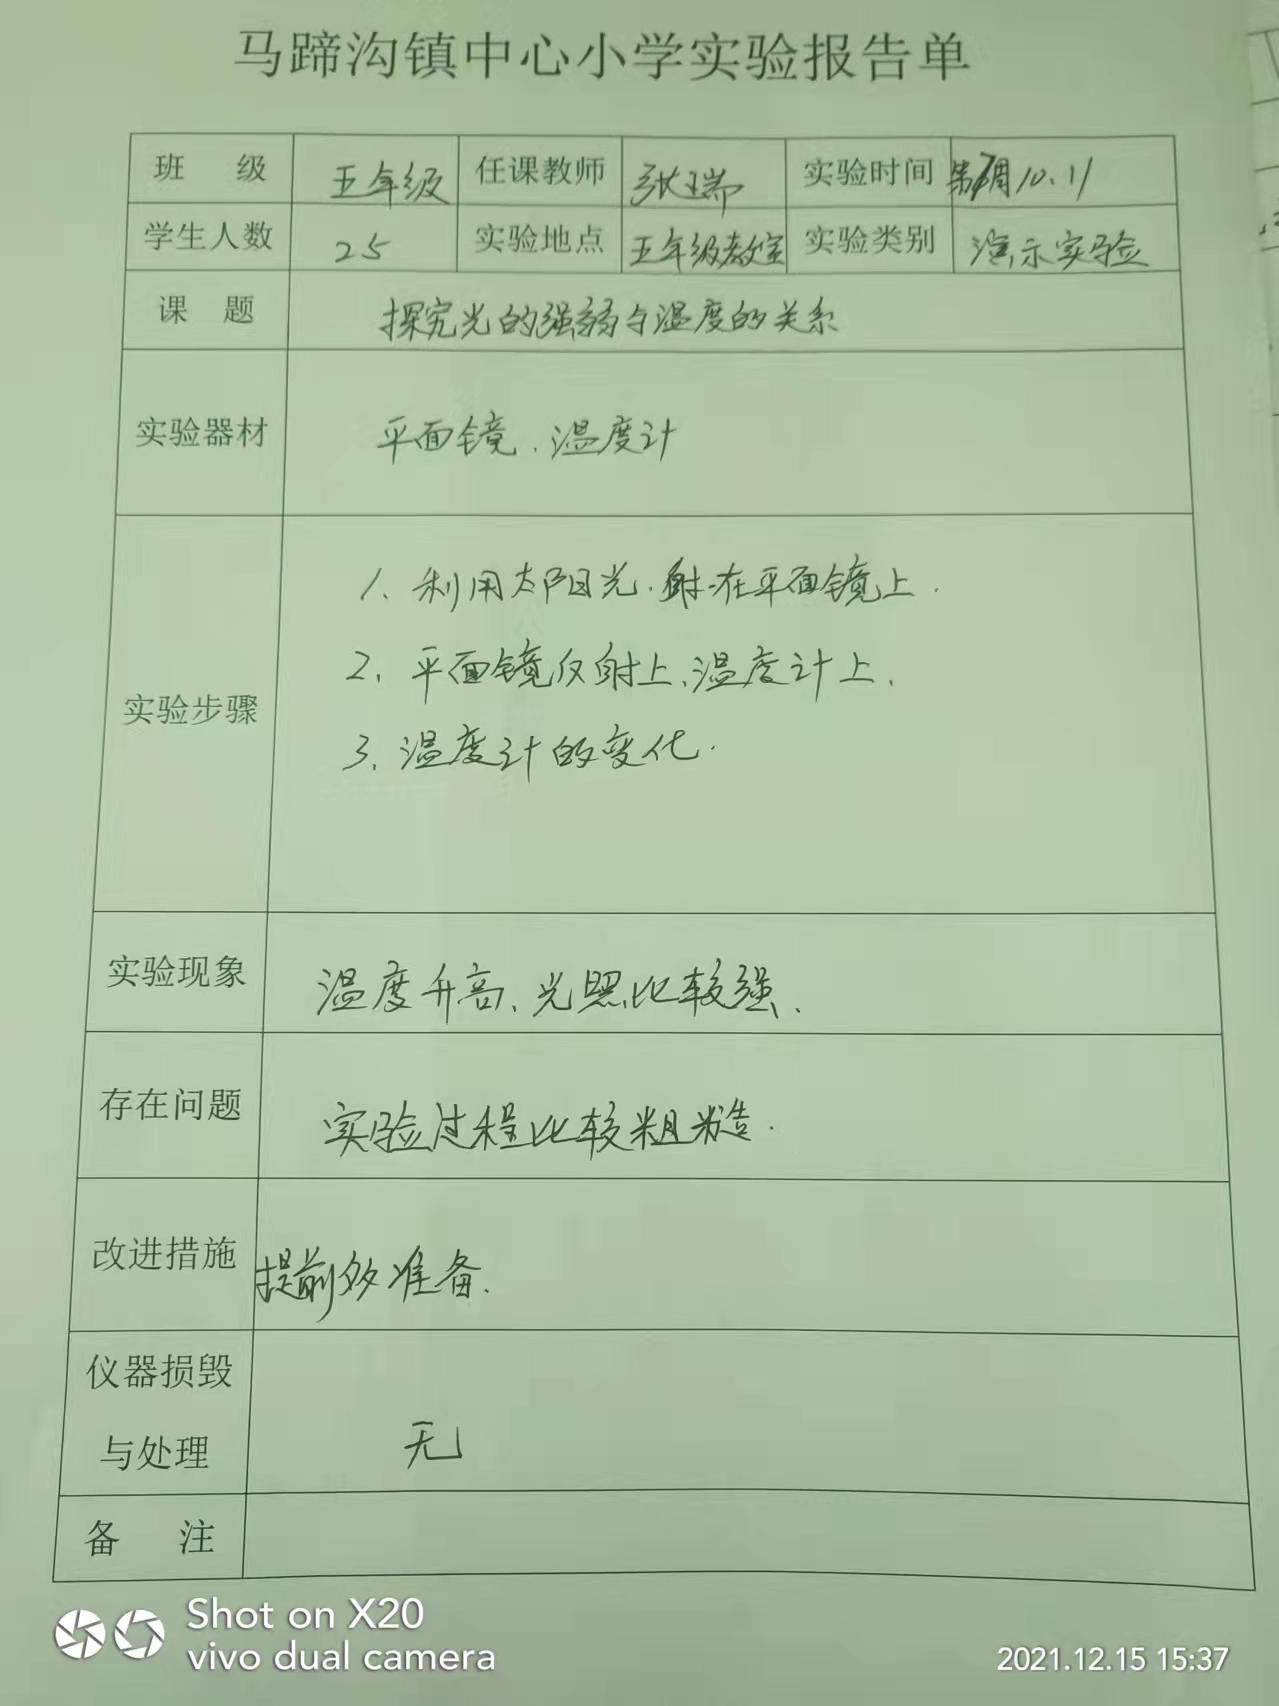 马蹄沟镇中心小学实验报告单
班 级 五年级 任课教师 张瑞 实验时间 第7周10.11
学生人数 25 实验地点 五年级教室 实验类别 演示实验
课 题 探究光的强弱与温度的关系
实验器材 平面镜、温度计
实验步骤
1、利用太阳光.射在平面镜上.
2、平面镜反射上、温度计上、
3、温度计的变化.
实验现象 温度升高、光照比较强、
存在问题 实验过程比较粗糙.
改进措施 提前多准备.
仪器损毁
与处理 无
备 注
Shot on X20
vivo dual camera
2021.12.15 15:37